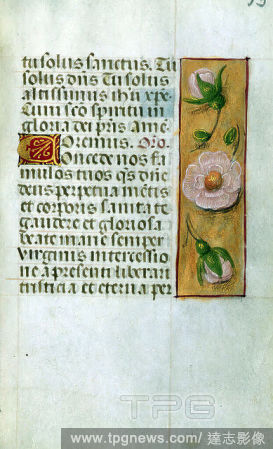 tu solus sanctus. Tu
solus dñs Tu solus
altissimus ih'u xp̃e
Cum sc̃o spiritu in
gloria dei pr̃is amẽ
Oremus. Oro.
Concede nos fa
mulos tuos q̃s dñe
deus perpetua mẽtis
et corporis sanitate
gaudere et gloriosa
beate marie semper
virginis intercessio
ne a presenti liberari
tristicia et eterna per
TPG
www.tpgnews.com/影像 / 達志影像